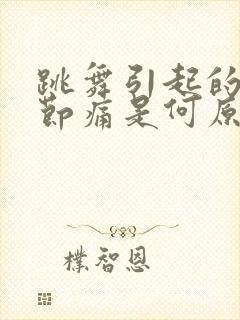 跳舞引起的
节痛是何原
樸智恩